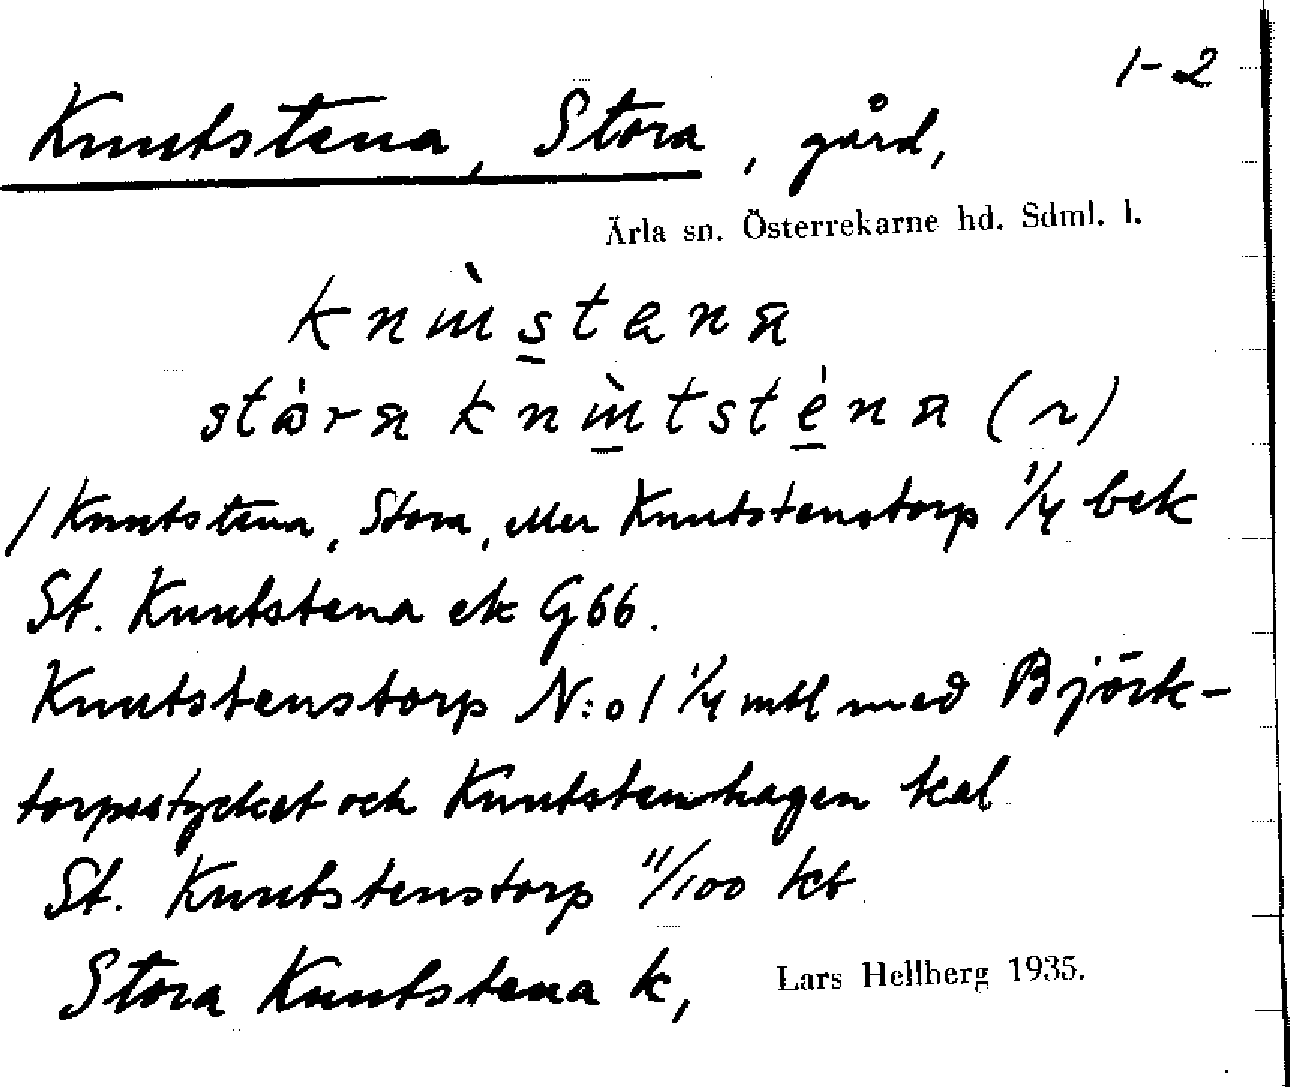 1-2
Knutstena, Stora, gård,
Ärla sn. Österrekarne hd. Sdml. l.
/ Knutstena, Stora, eller Knutstenstorp 1/4 bek
St. Knutstena ek G66.
Knutstenstorp N:o 1 1/4 mtl med Björk-
torpsstycket och Knutstenhagen kal
St. Knutstenstorp 11/100 kb
Stora Knutstena k,
Lars Hellberg 1935.